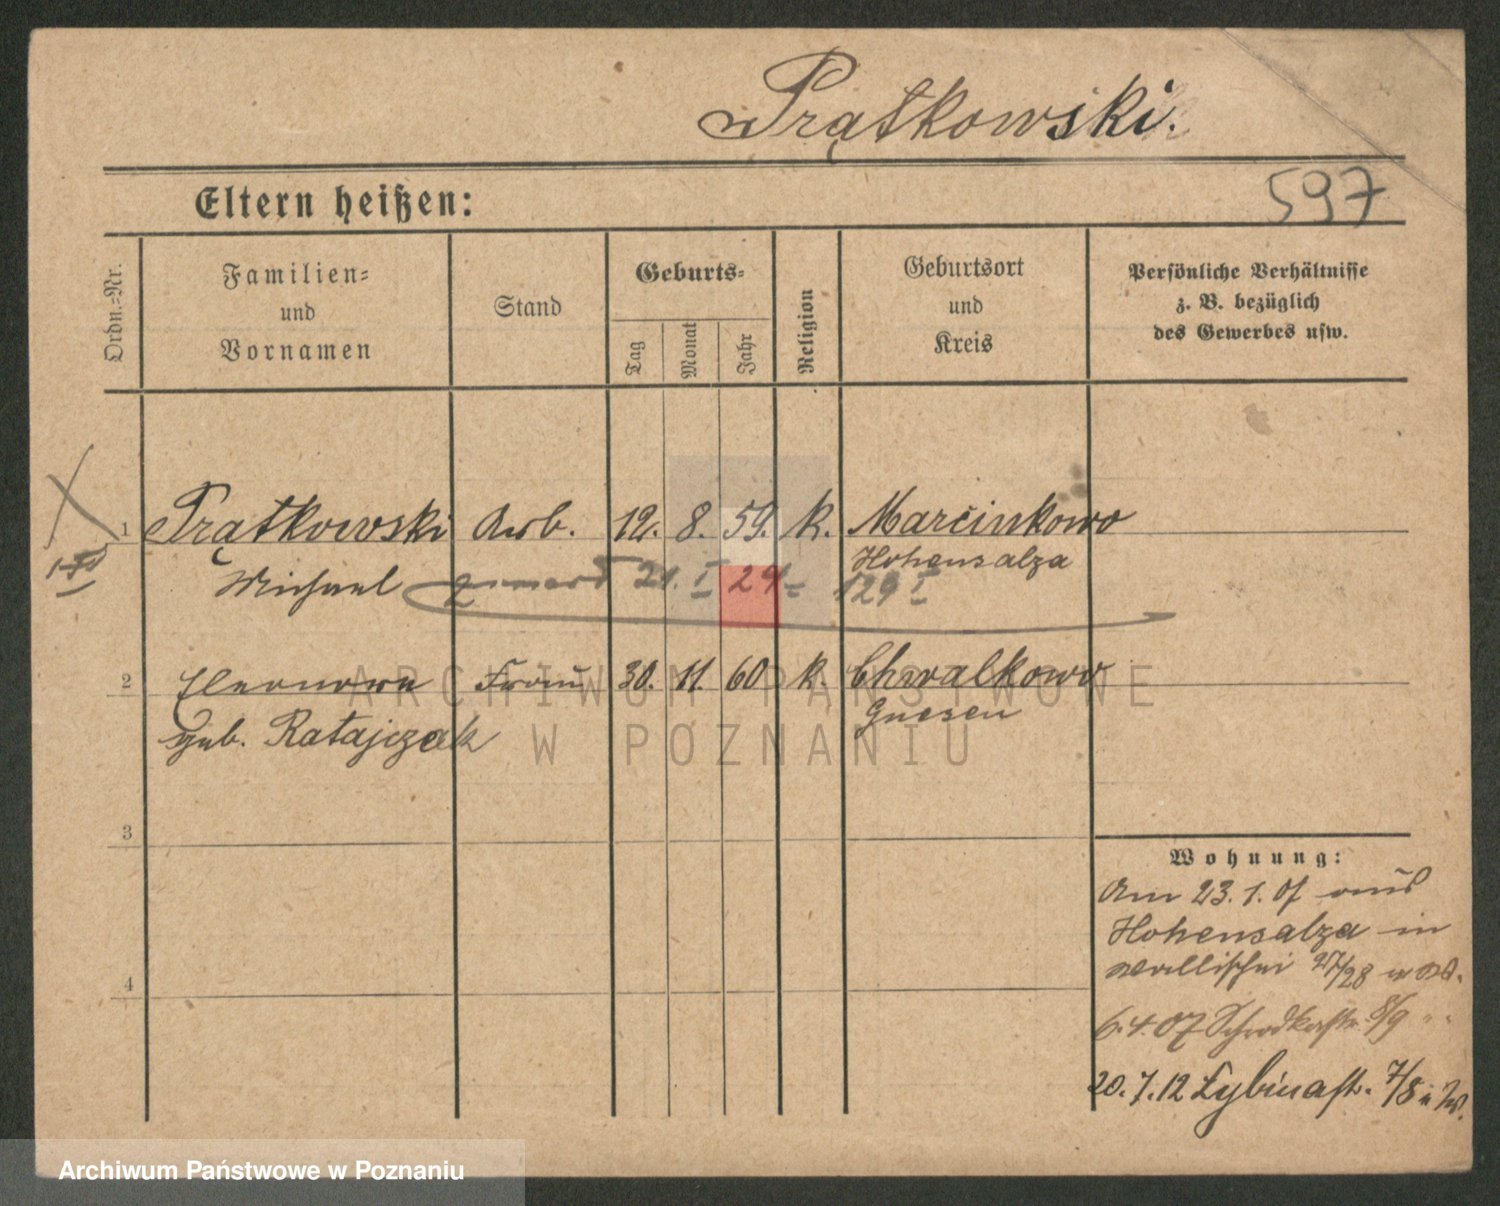 Prątkowski.
597
Eltern heißen:
Ordn.-Nr.
Familien-
und
Vornamen
Stand
Geburts-
Tag
Monat
Jahr
Religion
Geburtsort
und
Kreis
Persönliche Verhältnisse
z. B. bezüglich
des Gewerbes usw.
1 Prątkowski Arb. 12. 8. 59. k. Marcinkowo
Hohensalza
Michael zmarł 21. I 29 129 I
2 Eleonore Frau 30. 11. 60 k. Chwalkowo
Gnesen
geb. Ratajczak
3
4
Wohnung:
Am 23. 1. 07 aus
Hohensalza in
Wallischei 27/28 w
6.4.07 Schrodkastr. 8/9 " "
20.7.12 Cybinastr. 7/8
ARCHIWUM PAŃSTWOWE
W POZNANIU
Archiwum Państwowe w Poznaniu